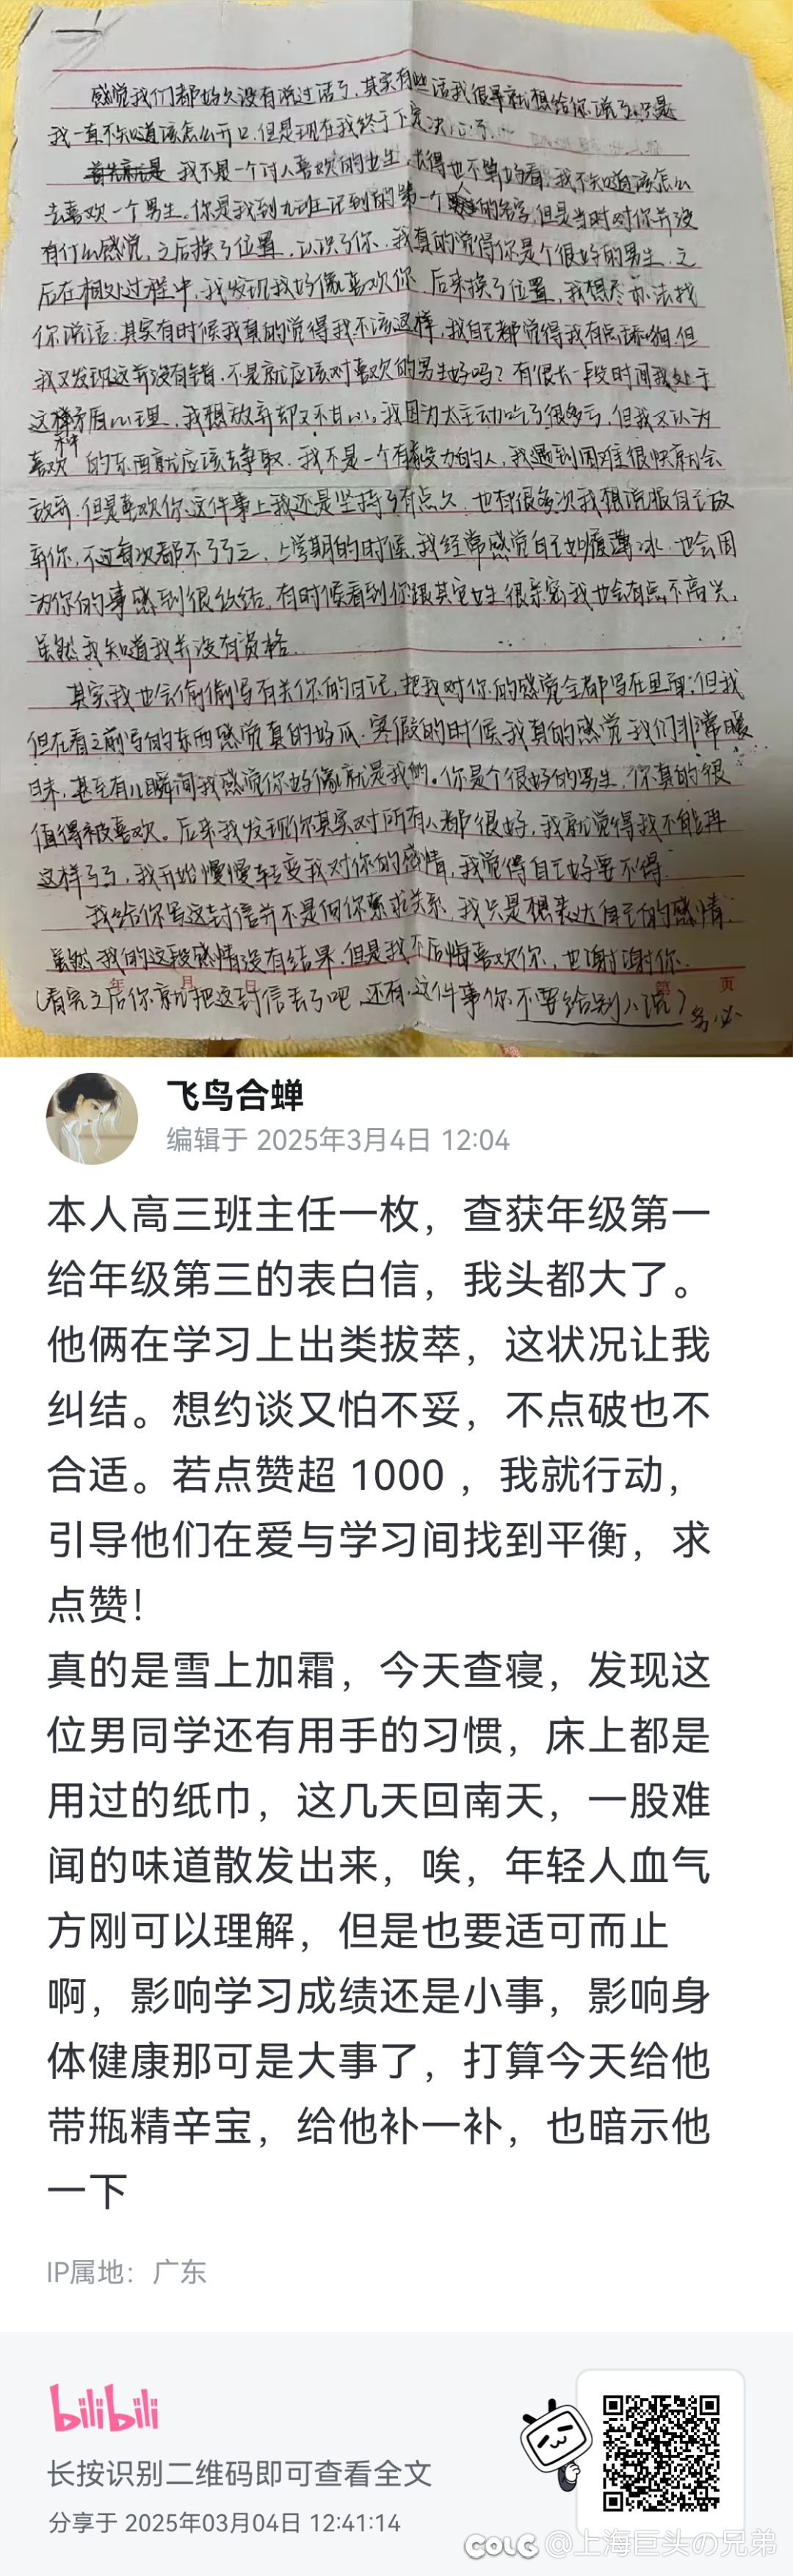 感觉我们都好久没有说过话了，其实有些话我很早就想给你说了，只是
我一直不知道该怎么开口，但是现在我终于下定决心了。
我不是一个讨人喜欢的女生，长得也不算好看，我不知道该怎么
去喜欢一个男生。你是我到九班记到的第一个的名字，但是当时对你并没
有什么感觉，之后换了位置，认识了你，我真的觉得你是个很好的男生，之
后在相处过程中，我发现我好像喜欢你，后来换了位置，我想尽办法找
你说话，其实有时候我真的觉得我不该这样，我自己都觉得我有点舔狗，但
我又发现这并没有错，不是就应该对喜欢的男生好吗？有很长一段时间我处于
这种矛盾心理，我想放弃却又不甘心，我因为太主动吃了很多亏，但我又认为
喜欢的东西就应该去争取，我不是一个有毅力的人，我遇到困难很快就会
放弃，但是喜欢你这件事上我还是坚持了有点久，也有很多次我想说服自己放
弃你，不过每次都不了了之，上学期的时候，我经常感觉自己如履薄冰，也会因
为你的事感到很纠结，有时候看到你跟其它女生很亲密，我也会有点不高兴，
虽然我知道我并没有资格。
其实我也会偷偷写有关你的日记，把我对你的感觉全都写在里面；但我
但在看之前写的东西感觉真的好瓜，寒假的时候我真的感觉我们非常暧
昧，甚至有儿瞬间我感觉你好像就是我的。你是个很好的男生，你真的很
值得被喜欢。后来我发现你其实对所有人都很好，我就觉得我不能再
这样了，我开始慢慢转变我对你的感情，我觉得自己好要不得
我给你写这封信并不是向你索求关系，我只是想表达自己的感情，
虽然我的这段感情没有结果，但是我不后悔喜欢你，也谢谢你。
年 月 日 第 页
（看完之后你就把这封信丢了吧，还有，这件事你不要给别人说）务必
飞鸟合蝉
编辑于 2025年3月4日 12:04
本人高三班主任一枚，查获年级第一
给年级第三的表白信，我头都大了。
他俩在学习上出类拔萃，这状况让我
纠结。想约谈又怕不妥，不点破也不
合适。若点赞超 1000 ，我就行动，
引导他们在爱与学习间找到平衡，求
点赞！
真的是雪上加霜，今天查寝，发现这
位男同学还有用手的习惯，床上都是
用过的纸巾，这几天回南天，一股难
闻的味道散发出来，唉，年轻人血气
方刚可以理解，但是也要适可而止
啊，影响学习成绩还是小事，影响身
体健康那可是大事了，打算今天给他
带瓶精辛宝，给他补一补，也暗示他
一下
IP属地：广东
bilibili
长按识别二维码即可查看全文
分享于 2025年03月04日 12:41:14
COLG @上海巨头の兄弟